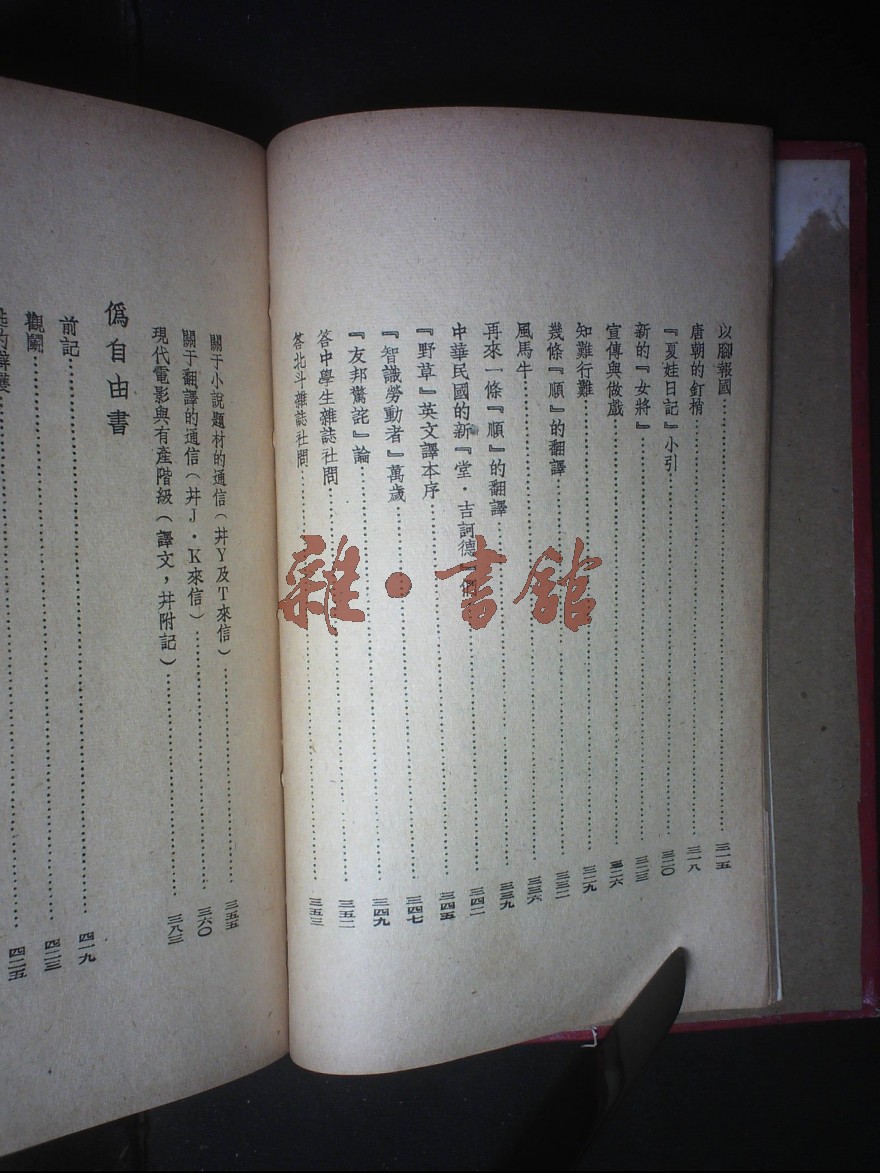 以腳報國…………三一五
唐朝的釘梢…………三一八
『夏娃日記』小引…………三二〇
新的『女將』…………三二三
宣傳與做戲…………三二六
知難行難…………三二九
幾條『順』的翻譯…………三三二
風馬牛…………三三六
再來一條『順』的翻譯…………三三九
中華民國的新『堂・吉訶德』們…………三四二
『野草』英文譯本序…………三四五
『智識勞動者』萬歲…………三四七
『友邦驚詫』論…………三四九
答中學生雜誌社問…………三五二
答北斗雜誌社問…………三五三
關于小說題材的通信(幷Y及T來信)…………三五五
關于翻譯的通信(幷J・K來信)…………三六〇
現代電影與有產階級(譯文,幷附記)…………三八三
僞自由書
前記…………四一九
觀鬭…………四二三
…………四二五
雜・書館